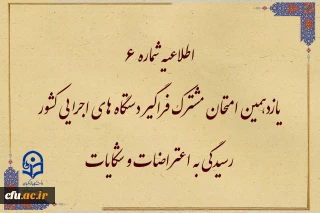 اطلاعیه شماره ۶
یازدهمین امتحان مشترک فراگیر دستگاه های اجرایی کشور
رسیدگی به اعتراضات و شکایات
cfu.ac.ir